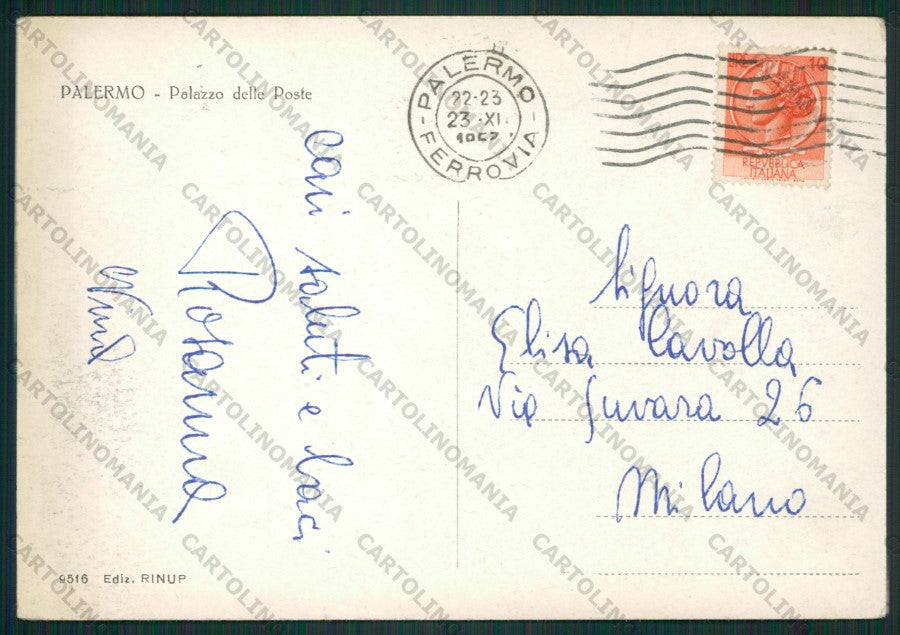 PALERMO - Palazzo delle Poste
PALERMO
22-23
23 XI
1957
FERROVIA
LIRE 10
REPVBBLICA
ITALIANA
cari saluti e baci
Rosanna
Nina
Signora
Elisa Cavolla
Via Juvara 26
Milano
9516 Ediz. RINUP
CARTOLINOMANIA